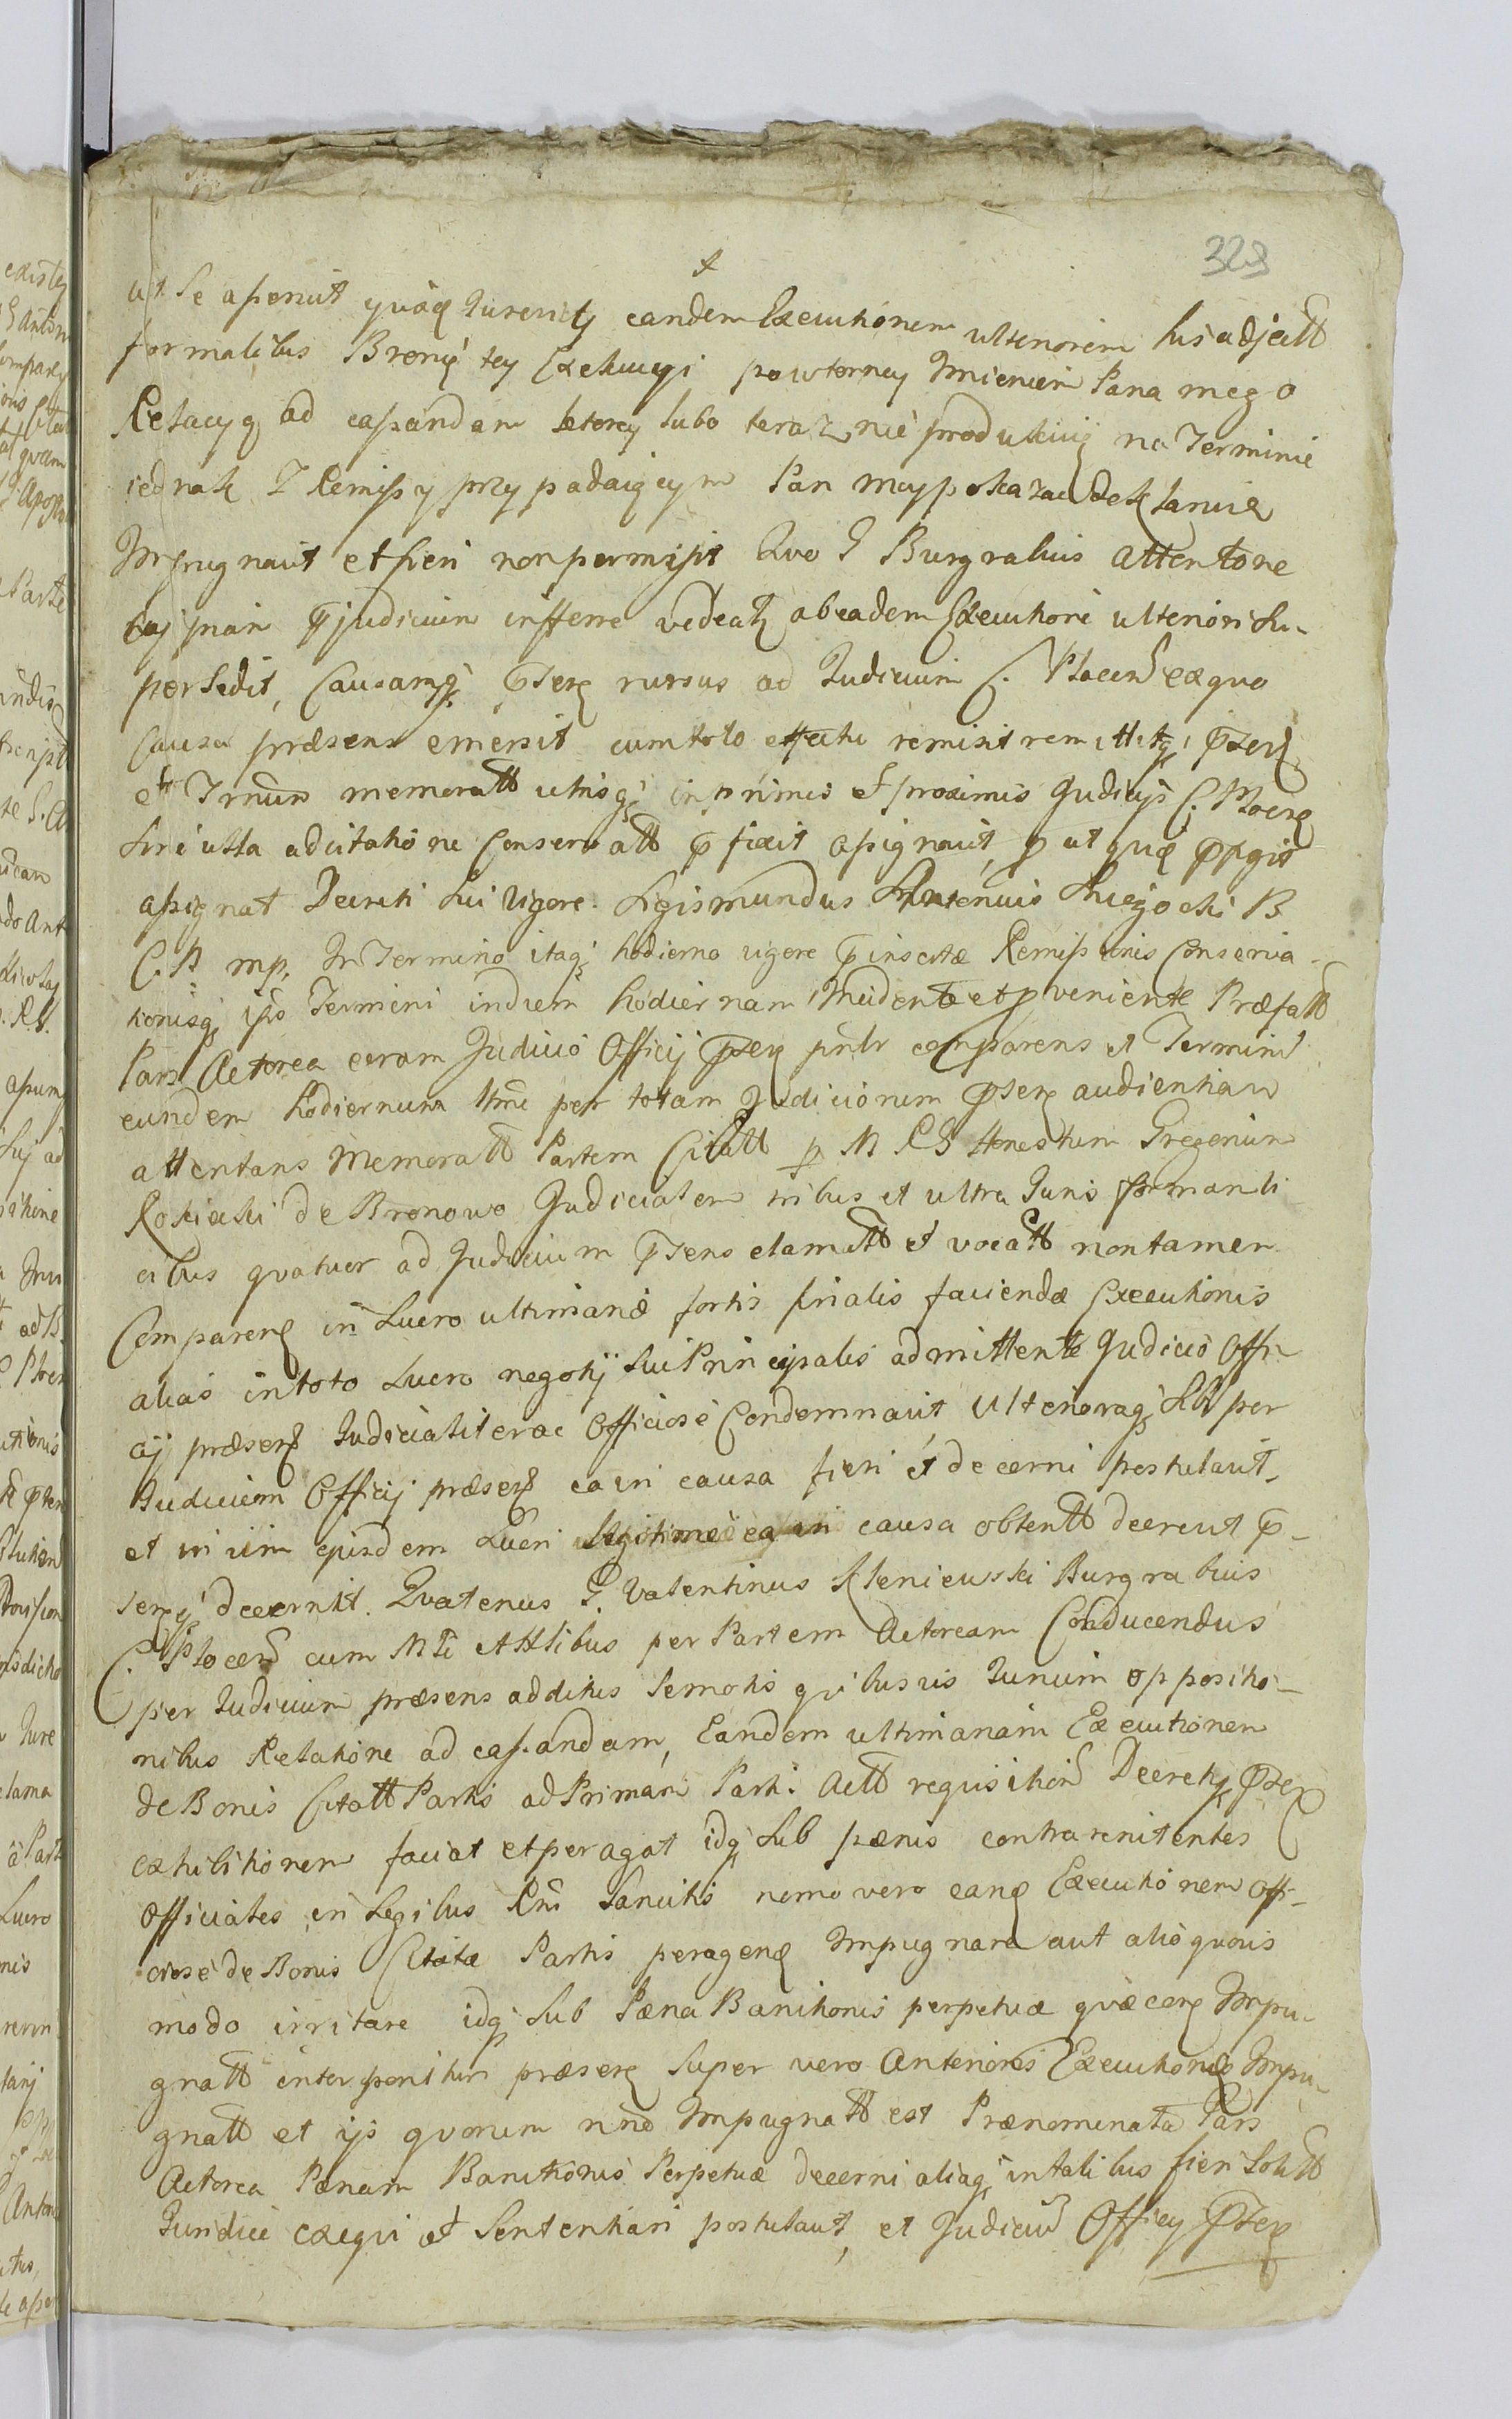 329
ut se aperuit quaq Jurevictq eandem Executionem ulteriorem his adjectt
formalibus Bronię tey Exekucyi powtorney Imieniem Pana mego
Relacyą ad capandam ktorey lubo teraz nie produkuię na Terminie
iednak z Remissy przypadaiącym Pan moy pokazac deklaruie
Impugnavit et fieri non permisit Quo G Burgrabius attento ne
eaj pnam pjudicium infferre videatq ab eadem Executione ulteriori Su-
persedit, Causamq pserq rursus ad Judicium C. Plocen ex quo
Causa præsens emersit cum toto effectu remisit remittitq pserq
et Trnum memoratt utrisq in primis et proximis Judicijs C. Plocen
sine ulla adcitatione Conservatt pfixit assignavit, put quę ppgit
assignat Decreti sui vigore. Sigismundus B
C. P. mp. In Termino itaq hodierno vigore pinsertæ Remissionis Conserva-
tionisq ips Termini in diem hodiernam Incidente et pveniente Præfatt
Pars Actorea coram Judicio Officij pserq pntr comparens et Termin
eundem hodiernum ltme per totam Judiciorum pserq audientiam
attentans memoratt Partem Citatt p M RG Honestum Gregorium
Rokicki de Bronowo Judicialem tribus et ultra Juris formanti
cibus quatuor ad Judicium psens clamatt et vocatt non tamen
Comparenq in Lucro ultimanæ fortis finalis faciendæ Executionis
alias in toto Lucro negotij sui Principalis admittente Judicio Offi
cij præserq Judicialiter ac Officiose Condemnavit Ulterioraq Sbi per
Judicium Officij præserq ea in causa fieri et decerni postulavit
et in vim ejusdem Lucri legitime ea in causa obtentt decrevit p-
serq decernit. Quatenus G. Valentinus Kleniewski Burgrabius
C. Plocen cum Mli et Nlibus per Partem Actoream Conducendus
per Judicium præsens additus Semotis quibusvis Jurium oppositio-
nibus Relatione ad capandam, Eandem ultimanam Executionem
de Bonis Citatt Partis ad Primam Partis Actt requisition Decretq pserq
exhibitionem faciat et peragat idq Sub pœnis contra renitentes
Officiales in Legibus Rni Sancitis nemo vero eanq Executionem Offi-
ciose de Bonis Citatæ Partis peragenq Impugnare aut alio quovis
modo irritare idq Sub Pœna Banitionis perpetuæ Impu-
gnatt interponitur præserq Super vero Anteriores Executiones Impu-
gnatt et ijs quorum nne Impugnatt est Prænominata Pars
Actorea Pœnam Banitionis Perpetuæ decerni aliaq in talibus fieri Solitt
Juridice exequi et Sententiari postulavit, et Judicium Officij pserq